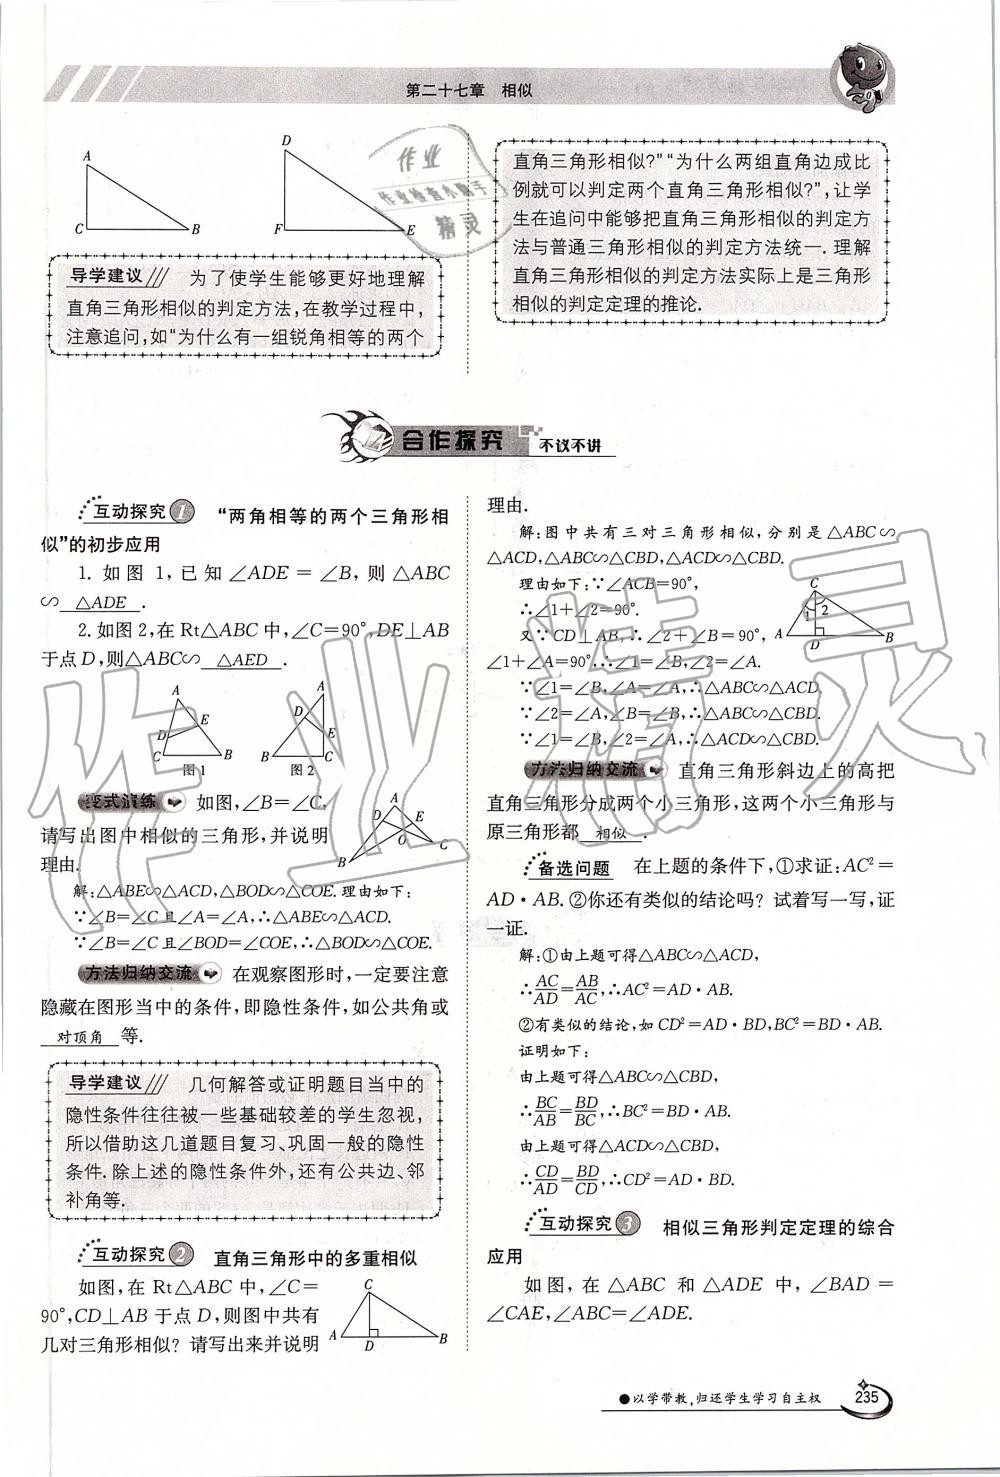 第二十七章　相似
A
C
B
D
F
E
导学建议 为了使学生能够更好地理解
直角三角形相似的判定方法,在教学过程中,
注意追问,如“为什么有一组锐角相等的两个
直角三角形相似?”“为什么两组直角边成比
例就可以判定两个直角三角形相似?”,让学
生在追问中能够把直角三角形相似的判定方
法与普通三角形相似的判定方法统一.理解
直角三角形相似的判定方法实际上是三角形
相似的判定定理的推论.
作业
作业检查小助手
精灵
合作探究 不议不讲
互动探究1 “两角相等的两个三角形相
似”的初步应用
1. 如图 1,已知∠ADE=∠B,则△ABC
∽ △ADE .
2.如图2,在Rt△ABC中,∠C=90°,DE⊥AB
于点D,则△ABC∽ △AED .
A
D
E
C
B
图1
A
D
E
B
C
图2
变式演练 如图,∠B=∠C,
请写出图中相似的三角形,并说明
理由.
A
D
E
O
B
C
解:△ABE∽△ACD,△BOD∽△COE.理由如下:
∵∠B=∠C且∠A=∠A,∴△ABE∽△ACD.
∵∠B=∠C且∠BOD=∠COE,∴△BOD∽△COE.
方法归纳交流 在观察图形时,一定要注意
隐藏在图形当中的条件,即隐性条件,如公共角或
对顶角 等.
导学建议 几何解答或证明题目当中的
隐性条件往往被一些基础较差的学生忽视,
所以借助这几道题目复习、巩固一般的隐性
条件.除上述的隐性条件外,还有公共边、邻
补角等.
互动探究2 直角三角形中的多重相似
如图,在 Rt△ABC 中,∠C=
90°,CD⊥AB于点D,则图中共有
几对三角形相似?请写出来并说明
C
A
D
B
理由.
解:图中共有三对三角形相似,分别是△ABC∽
△ACD,△ABC∽△CBD,△ACD∽△CBD.
理由如下:∵∠ACB=90°,
∴∠1+∠2=90°.
又∵CD⊥AB,∴∠2+∠B=90°,
∠1+∠A=90°,∴∠1=∠B,∠2=∠A.
C
1 2
A
D
B
∵∠1=∠B,∠A=∠A,∴△ABC∽△ACD.
∵∠2=∠A,∠B=∠B,∴△ABC∽△CBD.
∵∠1=∠B,∠2=∠A,∴△ACD∽△CBD.
方法归纳交流 直角三角形斜边上的高把
直角三角形分成两个小三角形,这两个小三角形与
原三角形都 相似 .
备选问题 在上题的条件下,①求证:AC²=
AD·AB.②你还有类似的结论吗?试着写一写,证
一证.
解:①由上题可得△ABC∽△ACD,
∴AC/AD=AB/AC,∴AC²=AD·AB.
②有类似的结论,如CD²=AD·BD,BC²=BD·AB.
证明如下:
由上题可得△ABC∽△CBD,
∴BC/AB=BD/BC,∴BC²=BD·AB.
由上题可得△ACD∽△CBD,
∴CD/AD=BD/CD,∴CD²=AD·BD.
互动探究3 相似三角形判定定理的综合
应用
如图,在△ABC 和△ADE 中,∠BAD=
∠CAE,∠ABC=∠ADE.
作业精灵
●以学带教,归还学生学习自主权
235